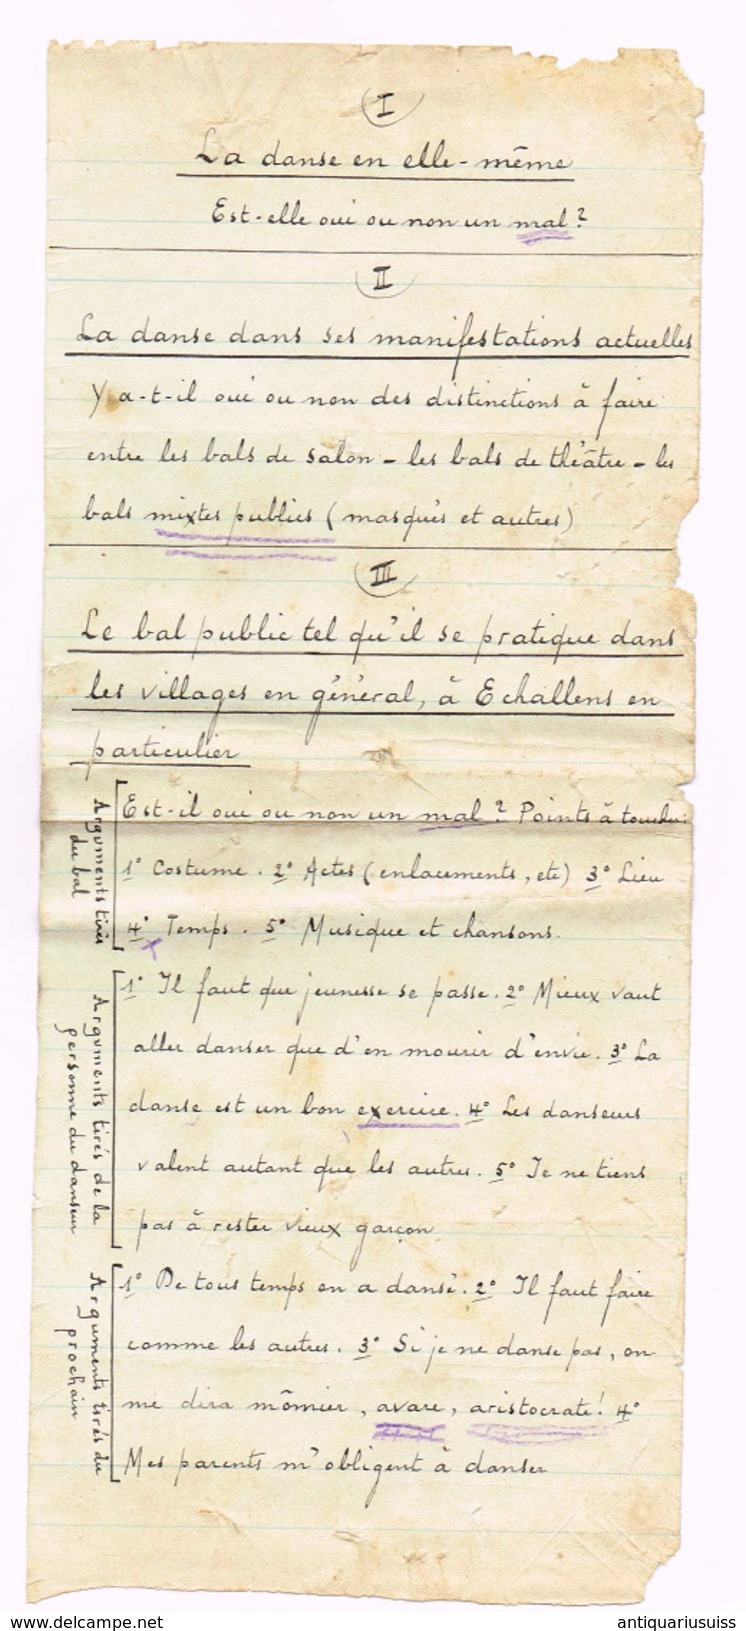 I
La danse en elle-même
Est-elle oui ou non un mal?
II
La danse dans ses manifestations actuelles
Y a-t-il oui ou non des distinctions à faire
entre les bals de salon - les bals de théâtre - les
bals mixtes publics (masqués et autres)
III
Le bal public tel qu'il se pratique dans
les villages en général, à Echallens en
particulier
Arguments tirés
du bal
Est-il oui ou non un mal? Points à toucher:
1° Costume. 2° Actes (enlacements, etc) 3° Lieu
4° Temps. 5° Musique et chansons.
Arguments tirés de la
personne du danseur
1° Il faut que jeunesse se passe. 2° Mieux vaut
aller danser que d'en mourir d'envie. 3° La
danse est un bon exercice. 4° Les danseurs
valent autant que les autres. 5° Je ne tiens
pas à rester vieux garçon
Arguments tirés du
prochain
1° De tous temps on a dansé. 2° Il faut faire
comme les autres. 3° Si je ne danse pas, on
me dira mômier, avare, aristocrate! 4°
Mes parents m'obligent à danser
www.delcampe.net
antiquariusuiss